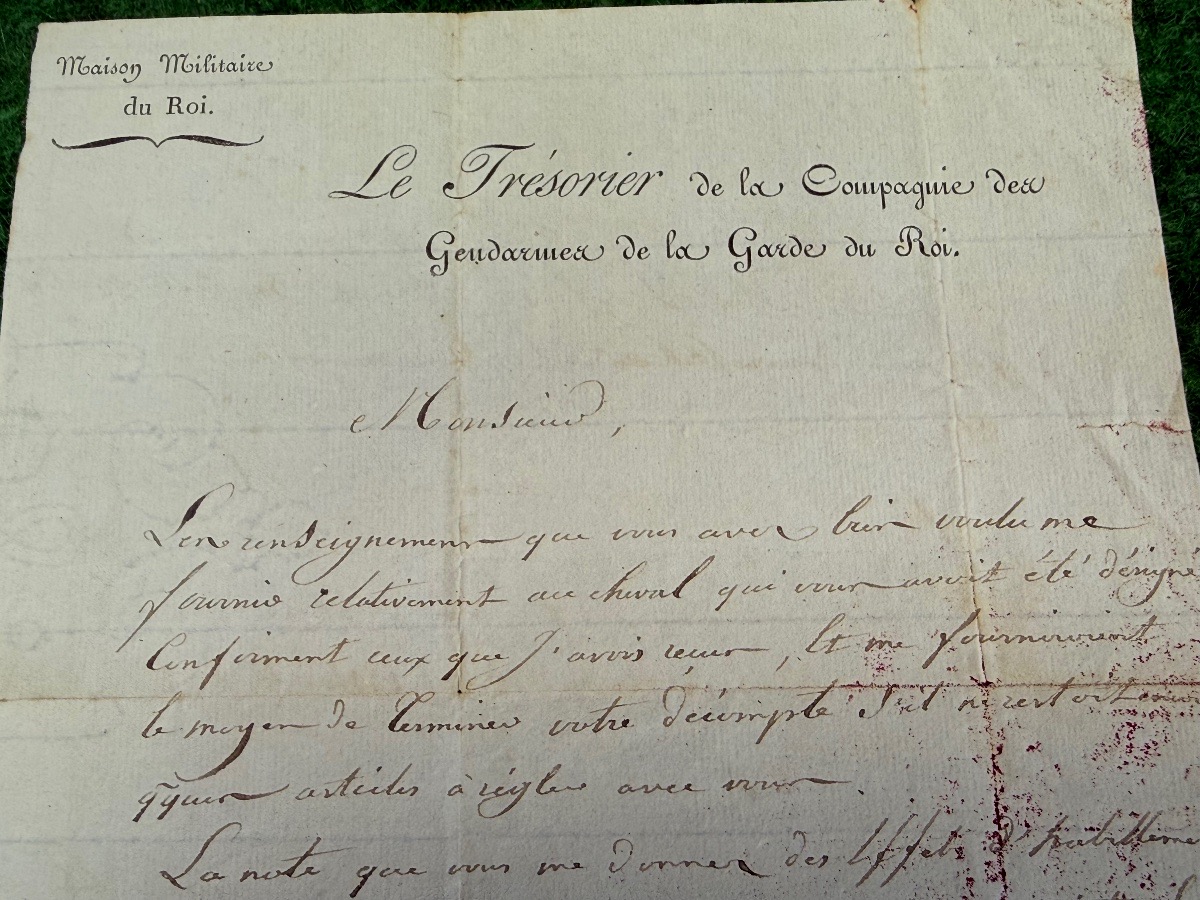 Maison Militaire
du Roi.
Le Trésorier de la Compagnie des
Gendarmes de la Garde du Roi.
Monsieur,
Les renseignemens que vous avez bien voulu me
fournir relativement au cheval qui vous avoit été désigné
Confirment ceux que j'avois reçus, Et me fourniroient
le moyen de Terminer votre décompte s'il ne restoit
qques articles à régler avec vous.
La note que vous me donnez des Effets d'habilleme